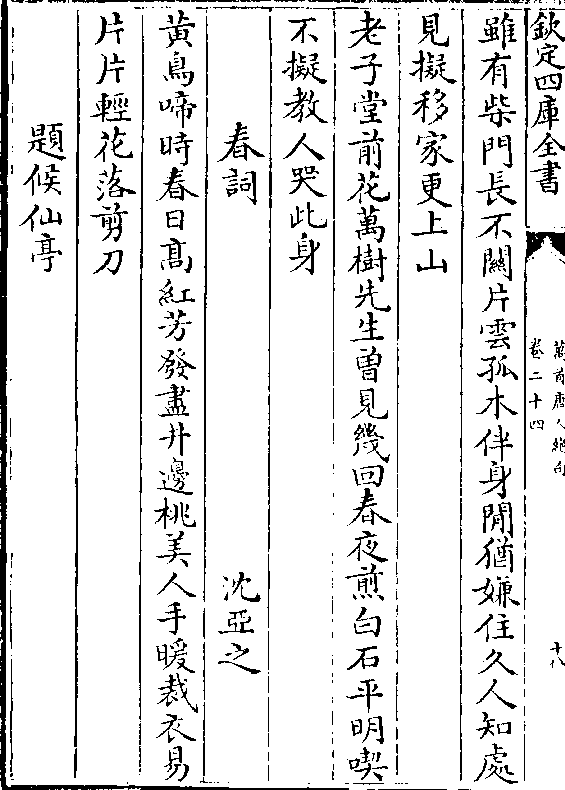 欽定四庫全書
萬首唐人絶句
卷二十四
十八
雖有柴門長不關片雲孤木伴身閒猶嫌住久人知處
見擬移家更上山
老子堂前花萬樹先生曽見幾回春夜煎白石平明喫
不擬教人哭此身
春詞
沈亞之
黄鳥啼時春日髙紅芳發盡井邊桃美人手暖裁衣易
片片輕花落剪刀
題候仙亭